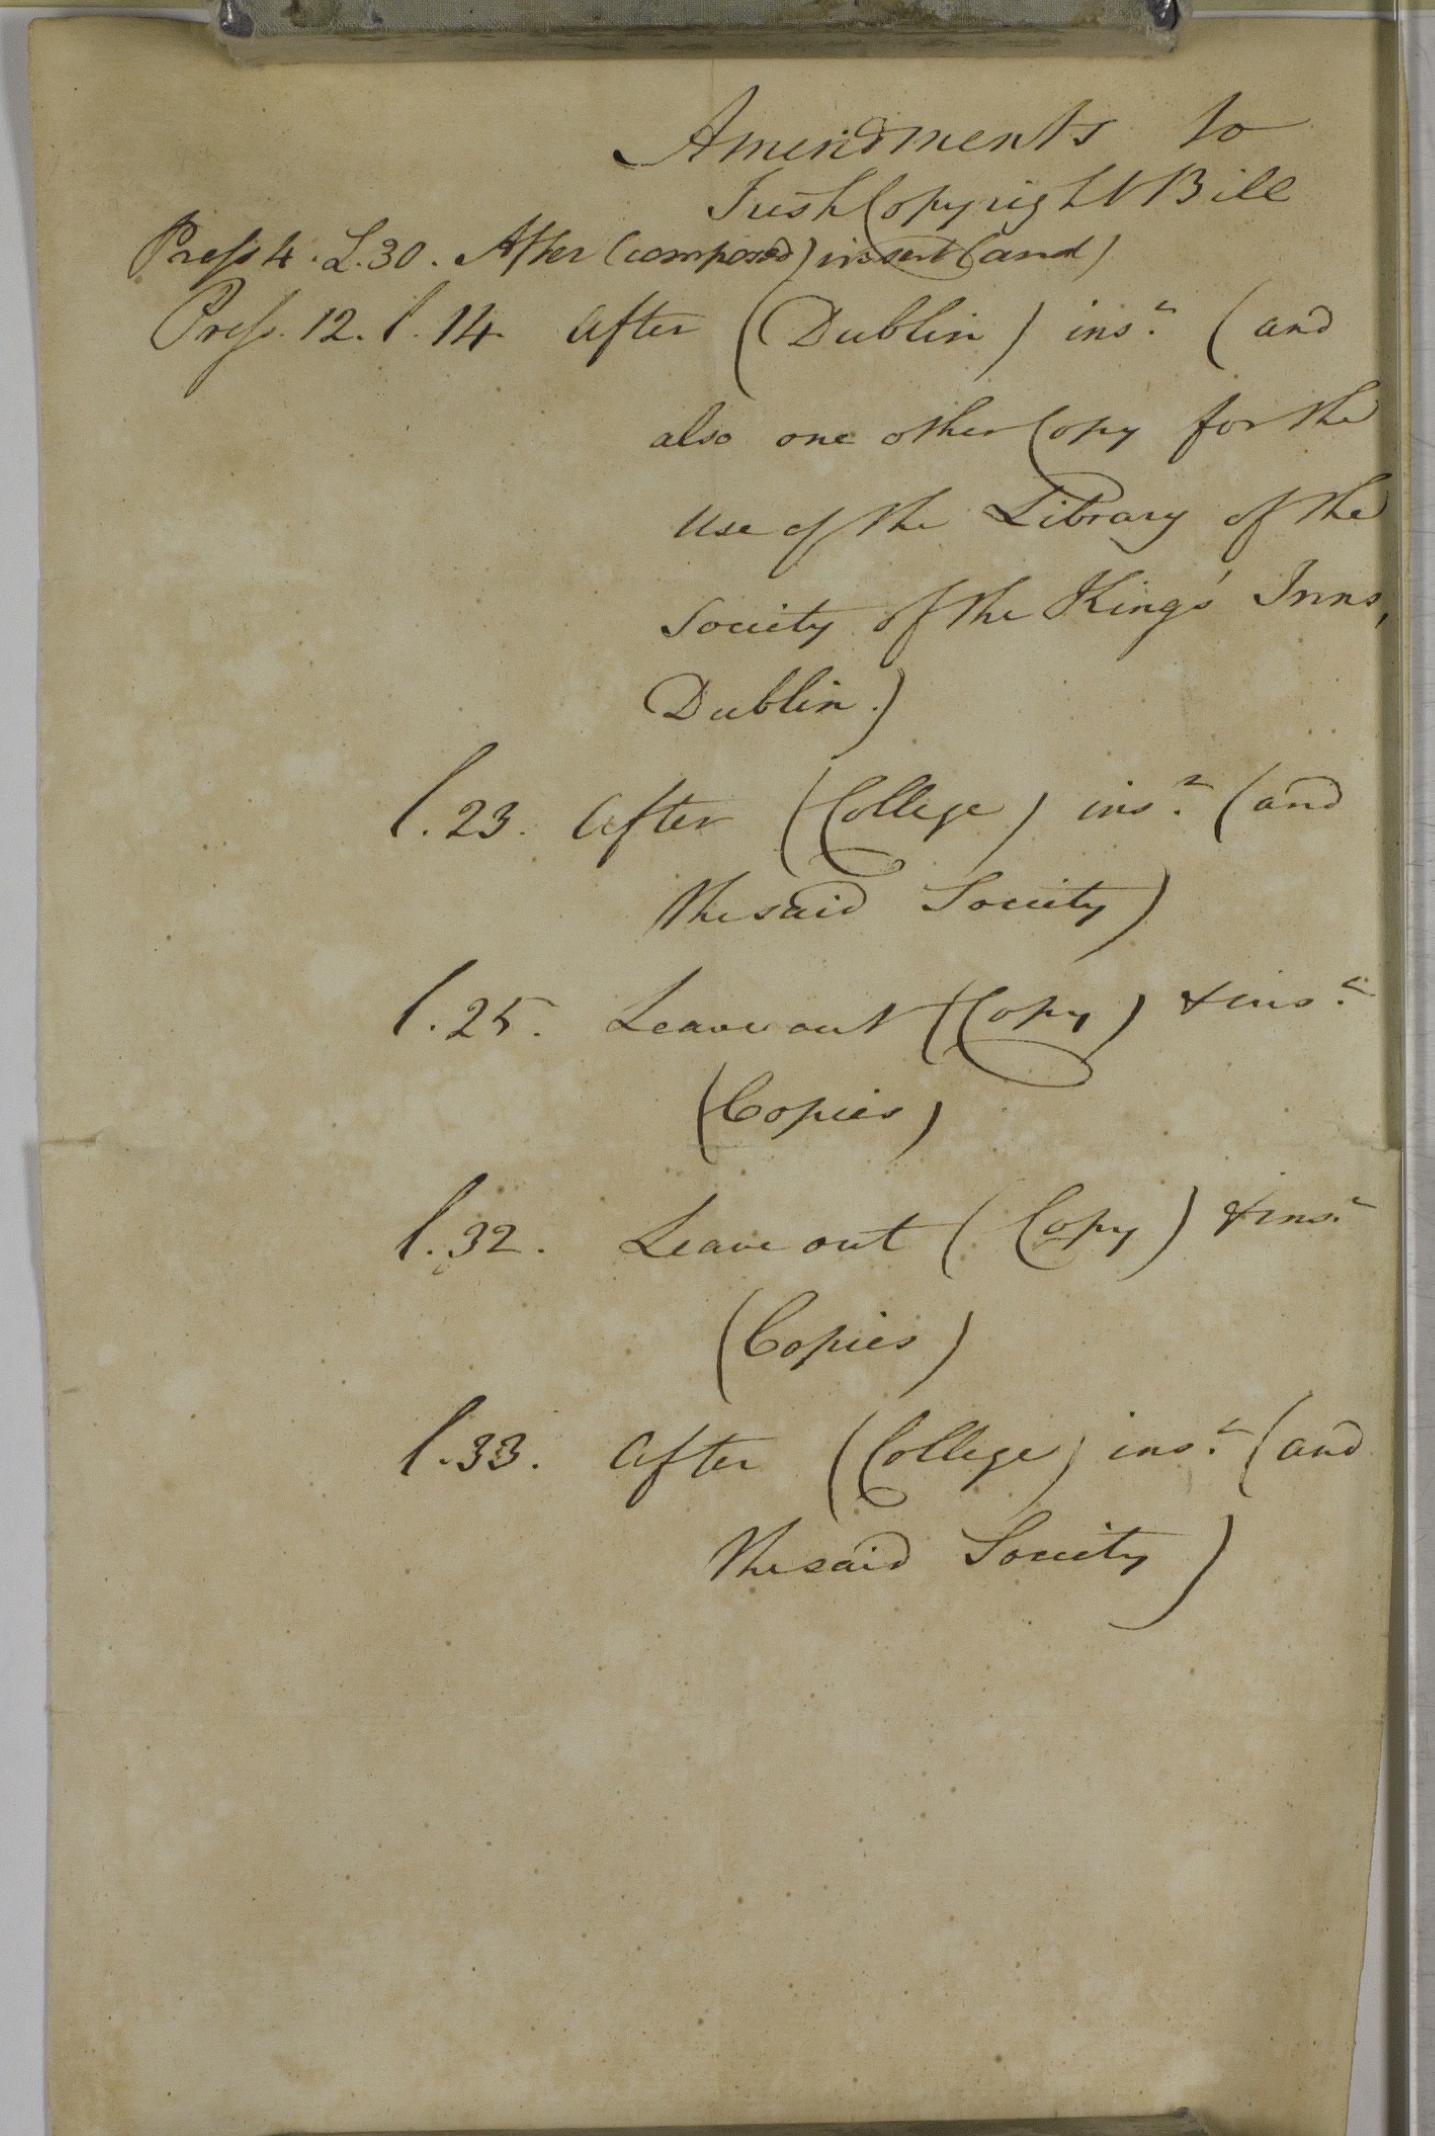 Amendments to
Irish Copyright Bill
Press 4. L.30. After (composed) insert (and)
Press. 12. l. 14. after (Dublin) ins.t (and
also one other Copy for the
Use of the Library of the
Society of the Kings' Inns,
Dublin.)
l. 23. after (College) ins.t (and
the said Society)
l. 25. Leave out (Copy) & ins.t
(Copies)
l. 32. Leave out (Copy) & ins.t
(Copies)
l. 33. after (College) ins.t (and
the said Society)